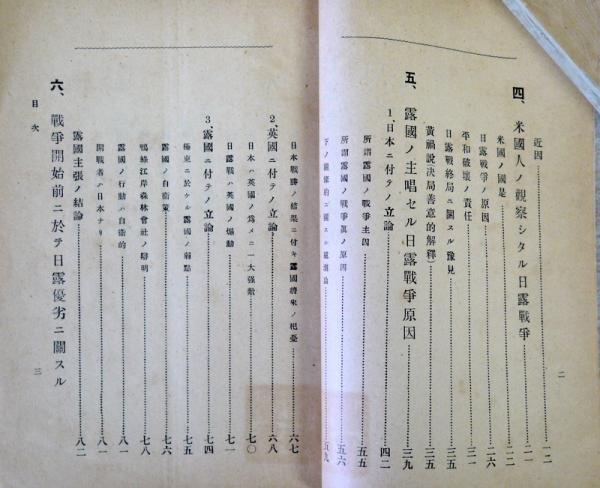 近因……一二
四、米國人ノ觀察シタル日露戰爭……二一
米國ノ國是……二二
日露戰爭ノ原因……二六
平和破壞ノ責任……三一
日露戰終局ニ關スル豫見……三五
黃禍說決局善意的解釋)……三五
五、露國ノ主唱セル日露戰爭原因……三九
1、日本ニ付テノ立論……四二
所謂露國ノ戰爭主因……五五
所謂露國ノ戰爭眞ノ原因……五六
ニ關スル……五九
二
日本戰勝ノ結果ニ付キ露國將來ノ杞憂……六七
2、英國ニ付テノ立論……六八
日本ハ英國ノ爲メニ一大强敵……七〇
日露戰ハ英國ノ煽動……七一
3、露國ニ付テノ立論……七四
極東ニ於ケル露國ノ弱點……七五
露國ノ自衞策……七六
鴨綠江岸森林會社ノ辯明……七八
露國ノ行動ハ自衞的……八一
開戰者ハ日本ナリ……八一
露國主張ノ結論……八二
六、戰爭開始前ニ於テ日露優劣ニ關スル
目次
三